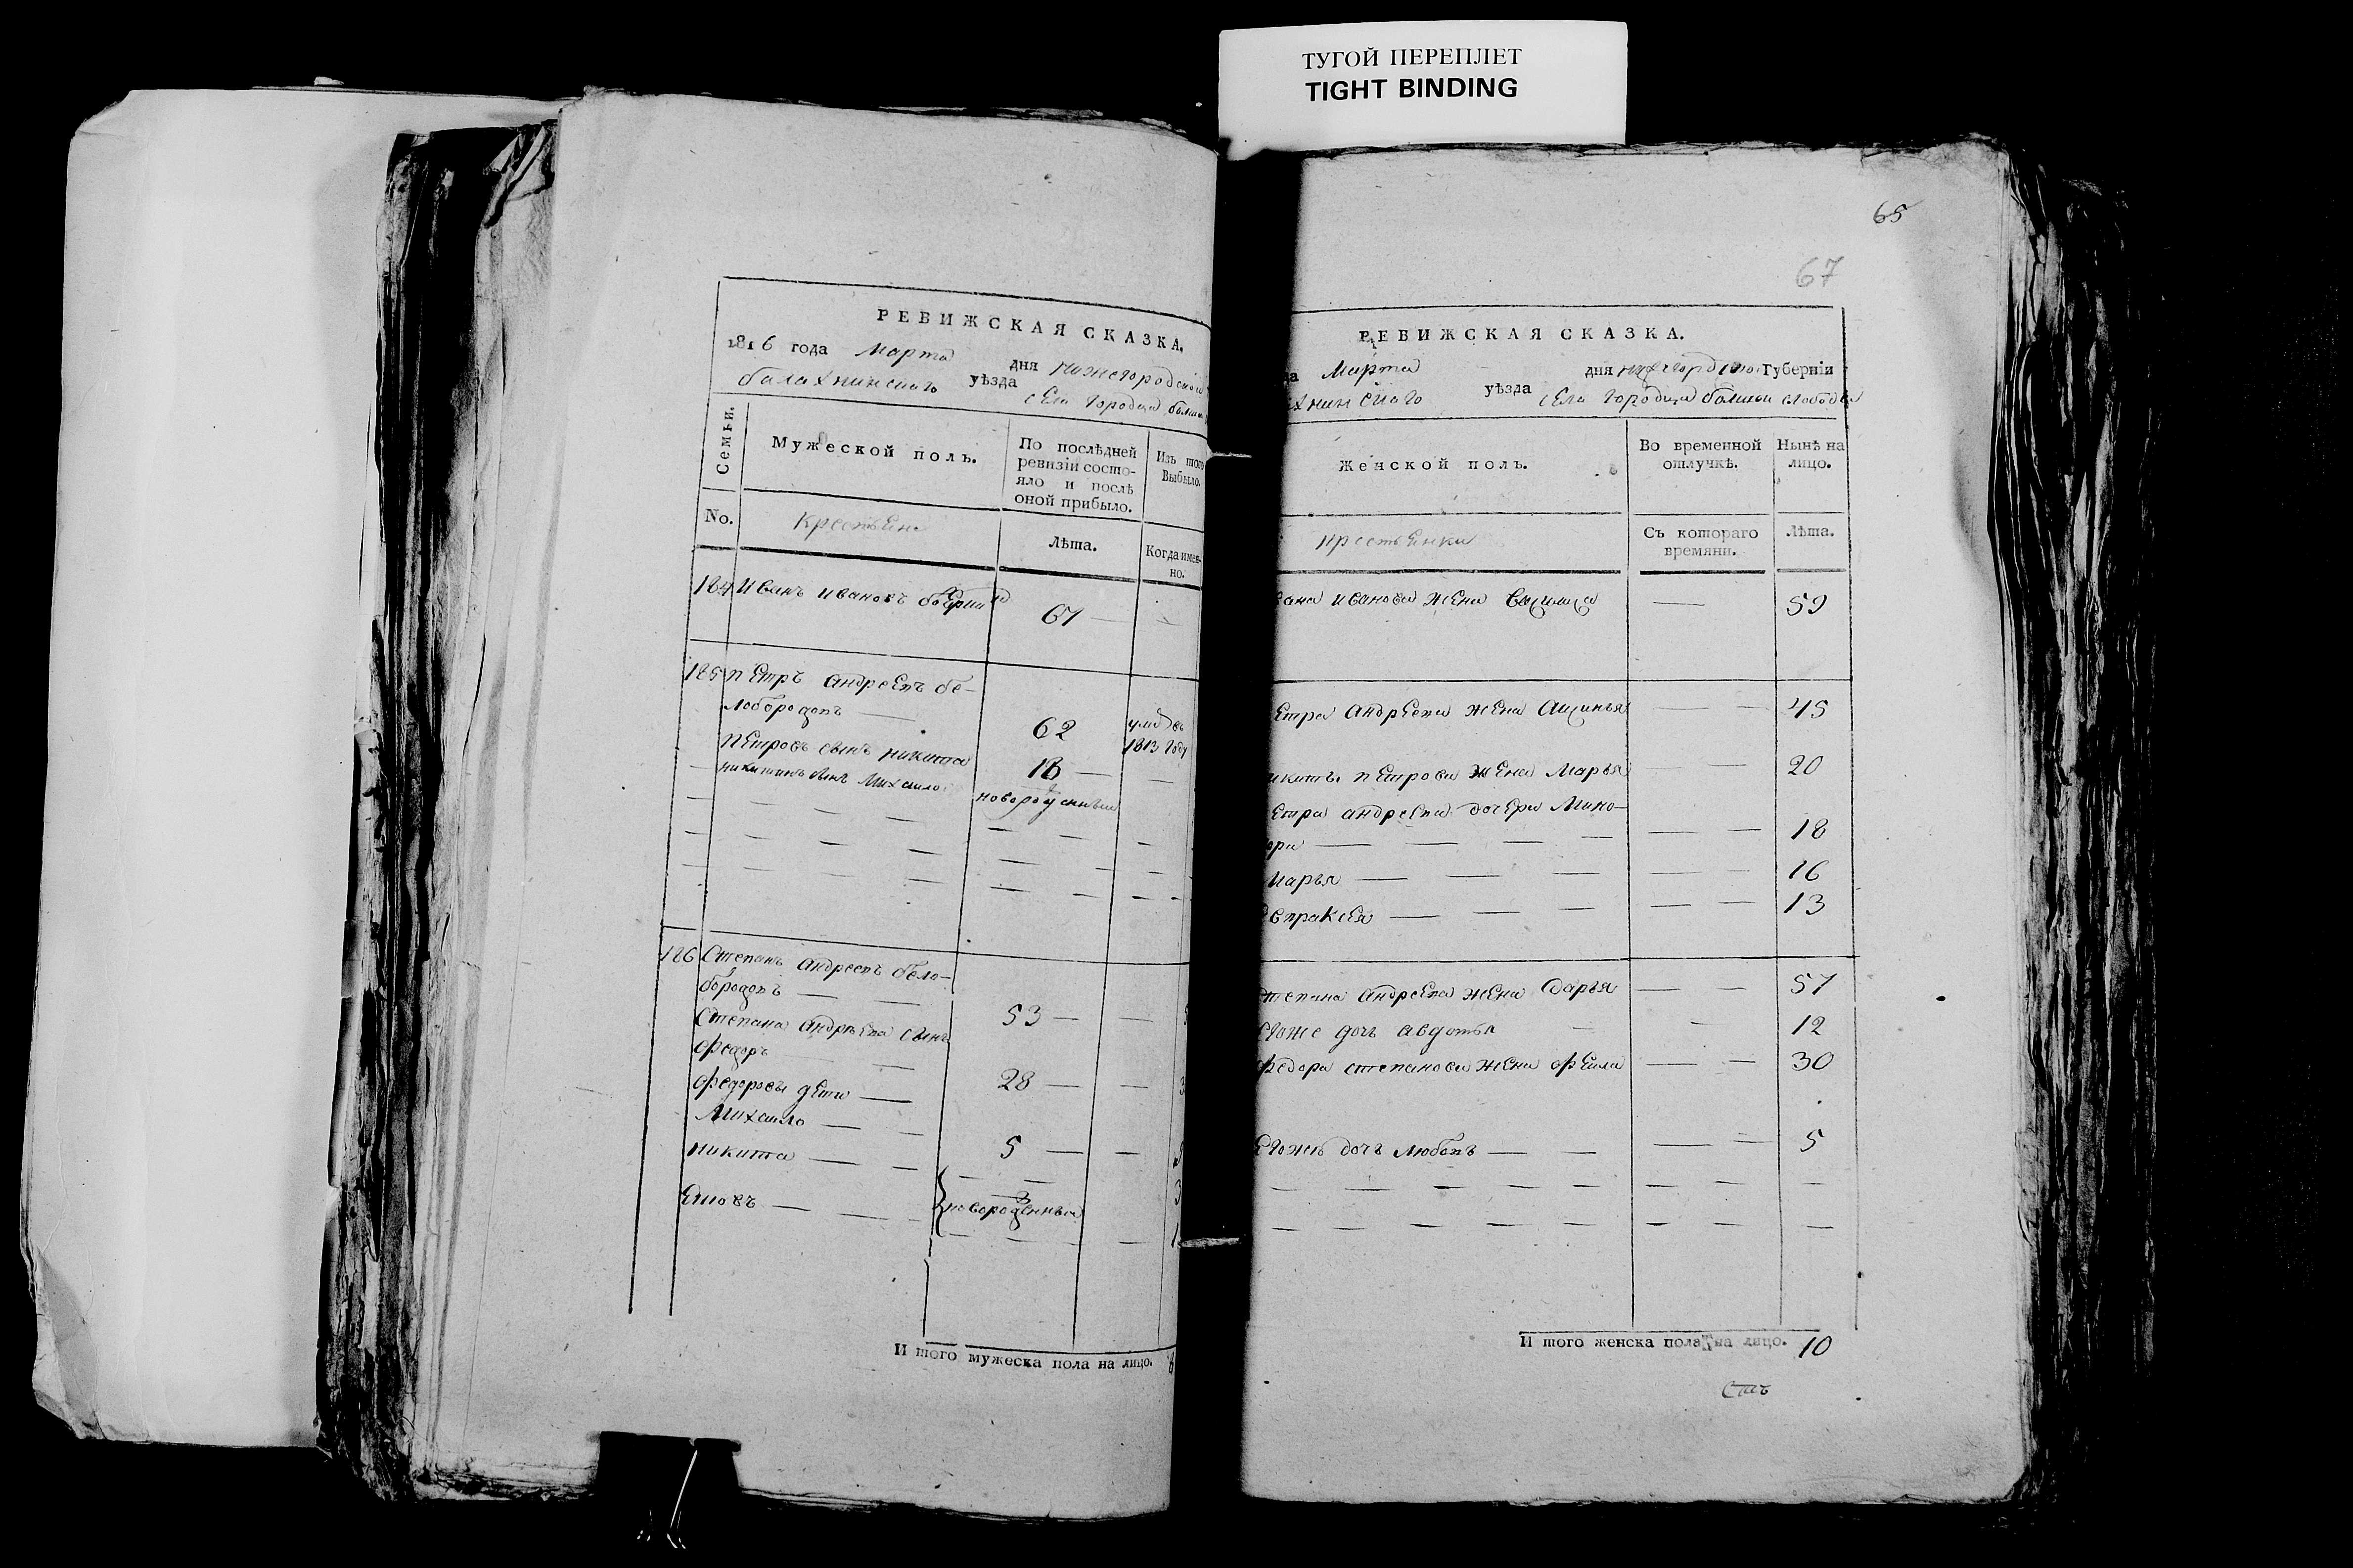 ТУГОЙ ПЕРЕПЛЕТ
TIGHT BINDING
РЕВИЖСКАЯ СКАЗКА.
1816 года Марта дня нижегородской
балахнинскаго уѣзда села городца
Семьи.
Мужеской полъ.
По послѣдней
ревизіи состо-
яло и послѣ
оной прибыло.
Изъ того
Выбыло.
No.
крестьяне
Лѣта.
Когда имен-
но.
184 Иванъ Ивановъ
67
185 петръ андреевъ бе-
лобородовъ
62
1813 году
петровъ сынъ никита
18
никитинъ сынъ Михаило
новорожденный
186 Степанъ андреевъ бело-
бородовъ
53
степана андреева сынъ
федоръ
28
федоровы дети
Михаило
5
никита
новорожденныя
И того мужеска пола на лицо. 8
65
67
РЕВИЖСКАЯ СКАЗКА.
Марта дня Губерніи
хнинскаго уѣзда села городца большой слободы
Женской полъ.
Во временной
отлучкѣ.
Нынѣ на
лицо.
крестьянки
Съ котораго
времяни.
Лѣта.
вана иванова жена
59
етра андреева жена аксинья 45
икиты петрова жена Марья 20
етра андреева дочери Мино-
ора 18
Марья 16
евпраксея 13
степана андреева жена дарья 57
евоже дочь авдотья 12
федора степанова жена 30
евоже дочь любовь 5
И того женска пола на лицо. 10